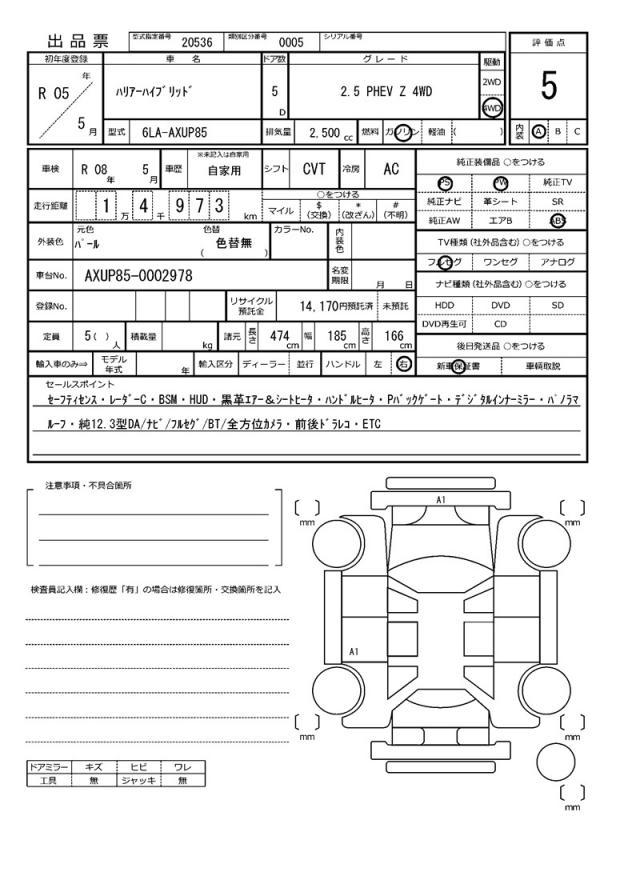 出品票
型式指定番号 20536 類別区分番号 0005 シリアル番号
評価点
初年度登録 車名 ドア数 グレード 駆動
R 05 年 5 月
ハリアーハイブリッド
5 D
2.5 PHEV Z 4WD
2WD
4WD
5
型式 6LA-AXUP85 排気量 2,500 cc 燃料 ガソリン 軽油 ( )
内装 A B C
車検 R 08 年 5 月 車歴 ※未記入は自家用 自家用 シフト CVT 冷房 AC
純正装備品 ○をつける
PS PW 純正TV
純正ナビ 革シート SR
純正AW エアB ABS
走行距離 1 万 4 千 9 7 3 km
○をつける
マイル $ (交換) * (改ざん) # (不明)
TV種類 (社外品含む) ○をつける
フルセグ ワンセグ アナログ
外装色 元色 パール 色替 色替無 ( ) カラーNo. 内装色
車台No. AXUP85-0002978 名変期限 月 日
ナビ種類 (社外品含む) ○をつける
HDD DVD SD
DVD再生可 CD
登録No. リサイクル預託金 14,170円預託済 未預託
定員 5( ) 人 積載量 kg 諸元 長さ 474 cm 幅 185 cm 高さ 166 cm
後日発送品 ○をつける
新車保証書 車輌取説
輸入車のみ⇒ モデル年式 年 輸入区分 ディーラー 並行 ハンドル 左 右
セールスポイント
セーフティセンス・レーダーC・BSM・HUD・黒革エアー＆シートヒータ・ハンドルヒータ・Pバックゲート・デジタルインナーミラー・パノラマ
ルーフ・純12.3型DA/ナビ/フルセグ/BT/全方位カメラ・前後ドラレコ・ETC
注意事項・不具合箇所
検査員記入欄：修復歴「有」の場合は修復箇所・交換箇所を記入
A1
mm
mm
A1
mm
mm
mm
ドアミラー キズ ヒビ ワレ
工具 無 ジャッキ 無